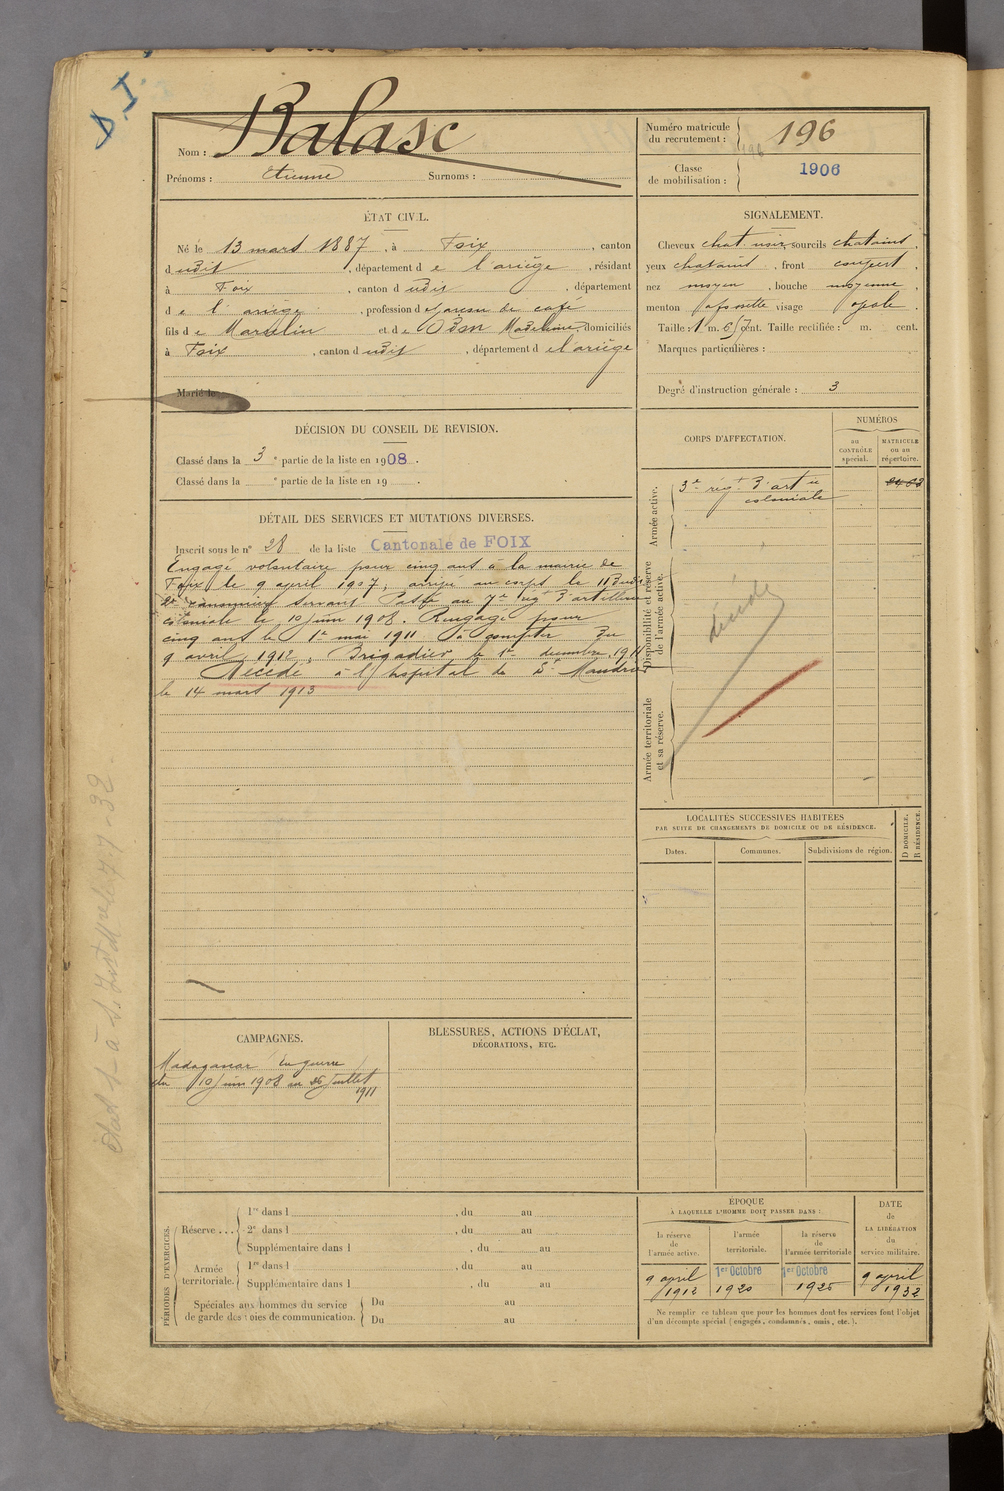 S. I.
Nom : Balasc
Prénoms : Etienne Surnoms :
Numéro matricule
du recrutement : 196
196
Classe
de mobilisation : 1906
ÉTAT CIVIL.
Né le 13 mars 1887, à Foix, canton
dudit, département de l'ariège, résidant
à Foix, canton dudit, département
de l'ariège, profession de garçon de café
fils de Marcelin et de Madeleine, domiciliés
à Foix, canton dudit, département de l'ariège
Marié le
SIGNALEMENT.
Cheveux chat. noir, sourcils chatains,
yeux chatains, front couvert,
nez moyen, bouche moyenne,
menton à fossette visage ovale
Taille : 1 m. 67 cent. Taille rectifiée : m. cent.
Marques particulières :
Degré d'instruction générale : 3
DÉCISION DU CONSEIL DE REVISION.
Classé dans la 3e partie de la liste en 1908.
Classé dans la e partie de la liste en 19 .
DÉTAIL DES SERVICES ET MUTATIONS DIVERSES.
Inscrit sous le n° 28 de la liste Cantonale de FOIX
Engagé volontaire pour cinq ans à la mairie de
Foix le 9 avril 1907, arrivé au corps le 11 dudit
2e canonnier servant Passé au 7e régt d'artillerie
coloniale le 10 juin 1908. Rengagé pour
cinq ans le 1er mai 1911 à compter du
9 avril 1912, Brigadier le 1er décembre 1911
Décédé à l'hopital de St Mandrier
le 14 mars 1913
CORPS D'AFFECTATION.
NUMÉROS
au
CONTRÔLE
spécial.
MATRICULE
ou au
répertoire.
Armée active.
3e régt d'artie
coloniale
Disponibilité et réserve
de l'armée active.
décédé
Armée territoriale
et sa réserve.
LOCALITÉS SUCCESSIVES HABITÉES
PAR SUITE DE CHANGEMENTS DE DOMICILE OU DE RÉSIDENCE.
Dates.
Communes.
Subdivisions de région.
D DOMICILE.
R RÉSIDENCE.
CAMPAGNES.
Madagascar En guerre
du 10 juin 1908 au 26 juillet
1911
BLESSURES, ACTIONS D'ÉCLAT,
DÉCORATIONS, ETC.
PÉRIODES D'EXERCICES.
Réserve ...
1re dans l , du au
2e dans l , du au
Supplémentaire dans l , du au
Armée
territoriale.
1re dans l , du au
Supplémentaire dans l , du au
Spéciales aux hommes du service
de garde des voies de communication.
Du au
Du au
ÉPOQUE
À LAQUELLE L'HOMME DOIT PASSER DANS :
la réserve
de
l'armée active.
l'armée
territoriale.
la réserve
de
l'armée territoriale
DATE
de
LA LIBÉRATION
du
service militaire.
9 avril
1912
1er Octobre
1920
1er Octobre
1926
9 avril
1932
Ne remplir ce tableau que pour les hommes dont les services font l'objet
d'un décompte spécial (engagés, condamnés, omis, etc.).